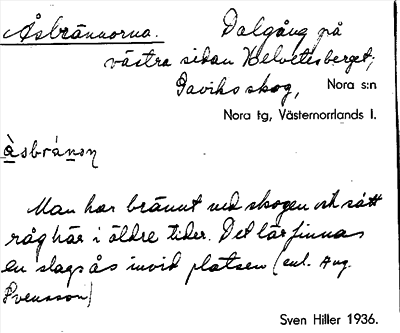 Åsbrännorna. Dalgång på
västra sidan Helvetesberget,
Gaviks skog, Nora s:n
Nora tg, Västernorrlands l.
àsbránon
Man har bränut ned skogen och sått
råg här i äldre tider. Det lär finnas
en slags ås invid platsen (enl. Aug.
Svensson)
Sven Hiller 1936.